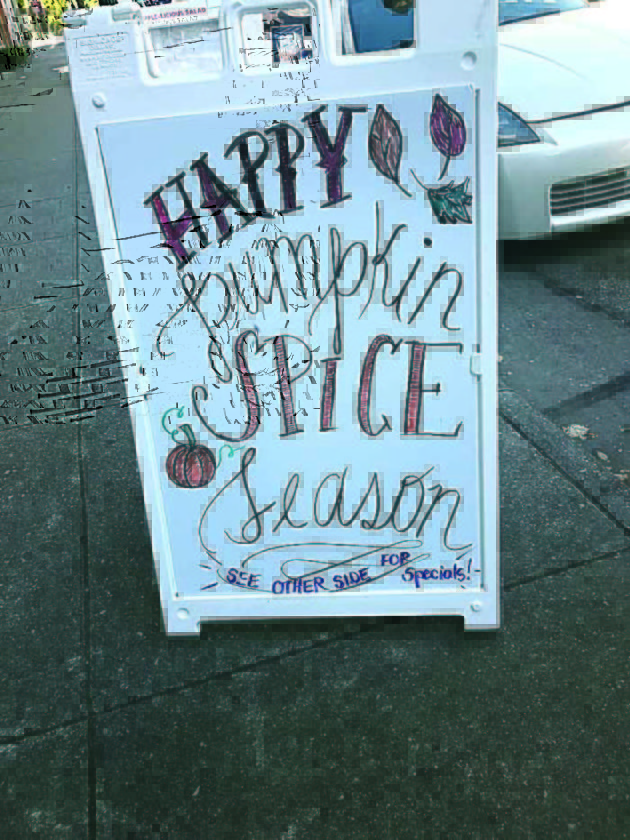 HAPPY
Pumpkin
SPICE
Season
SEE OTHER SIDE FOR Specials!